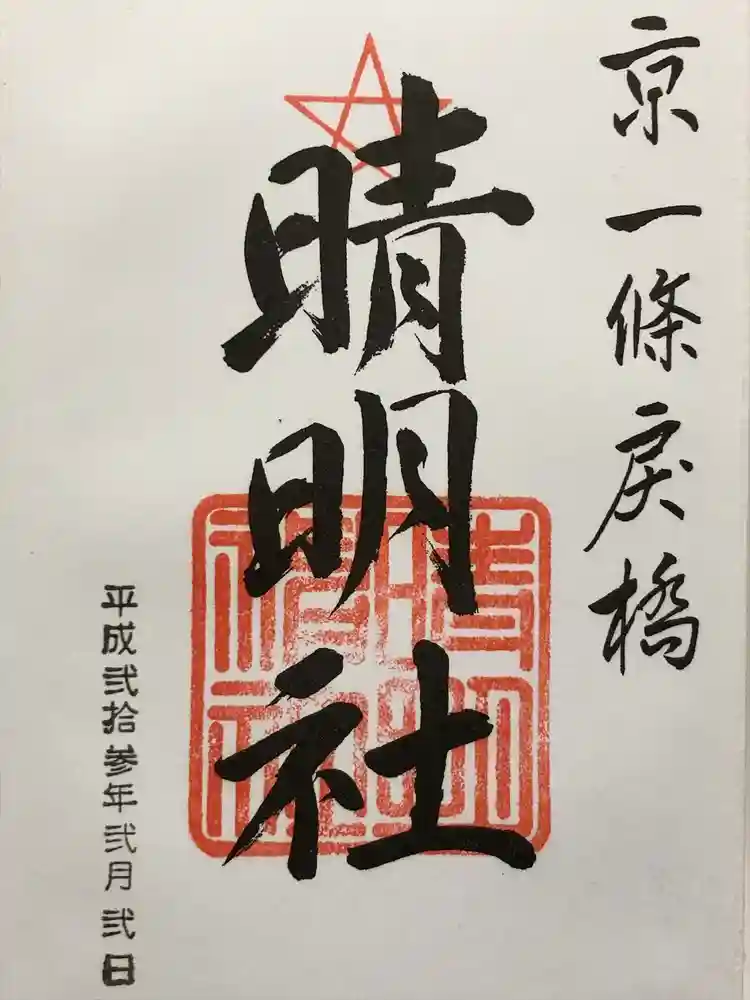 京一條戻橋
晴明社
平成弐拾参年弐月弐日